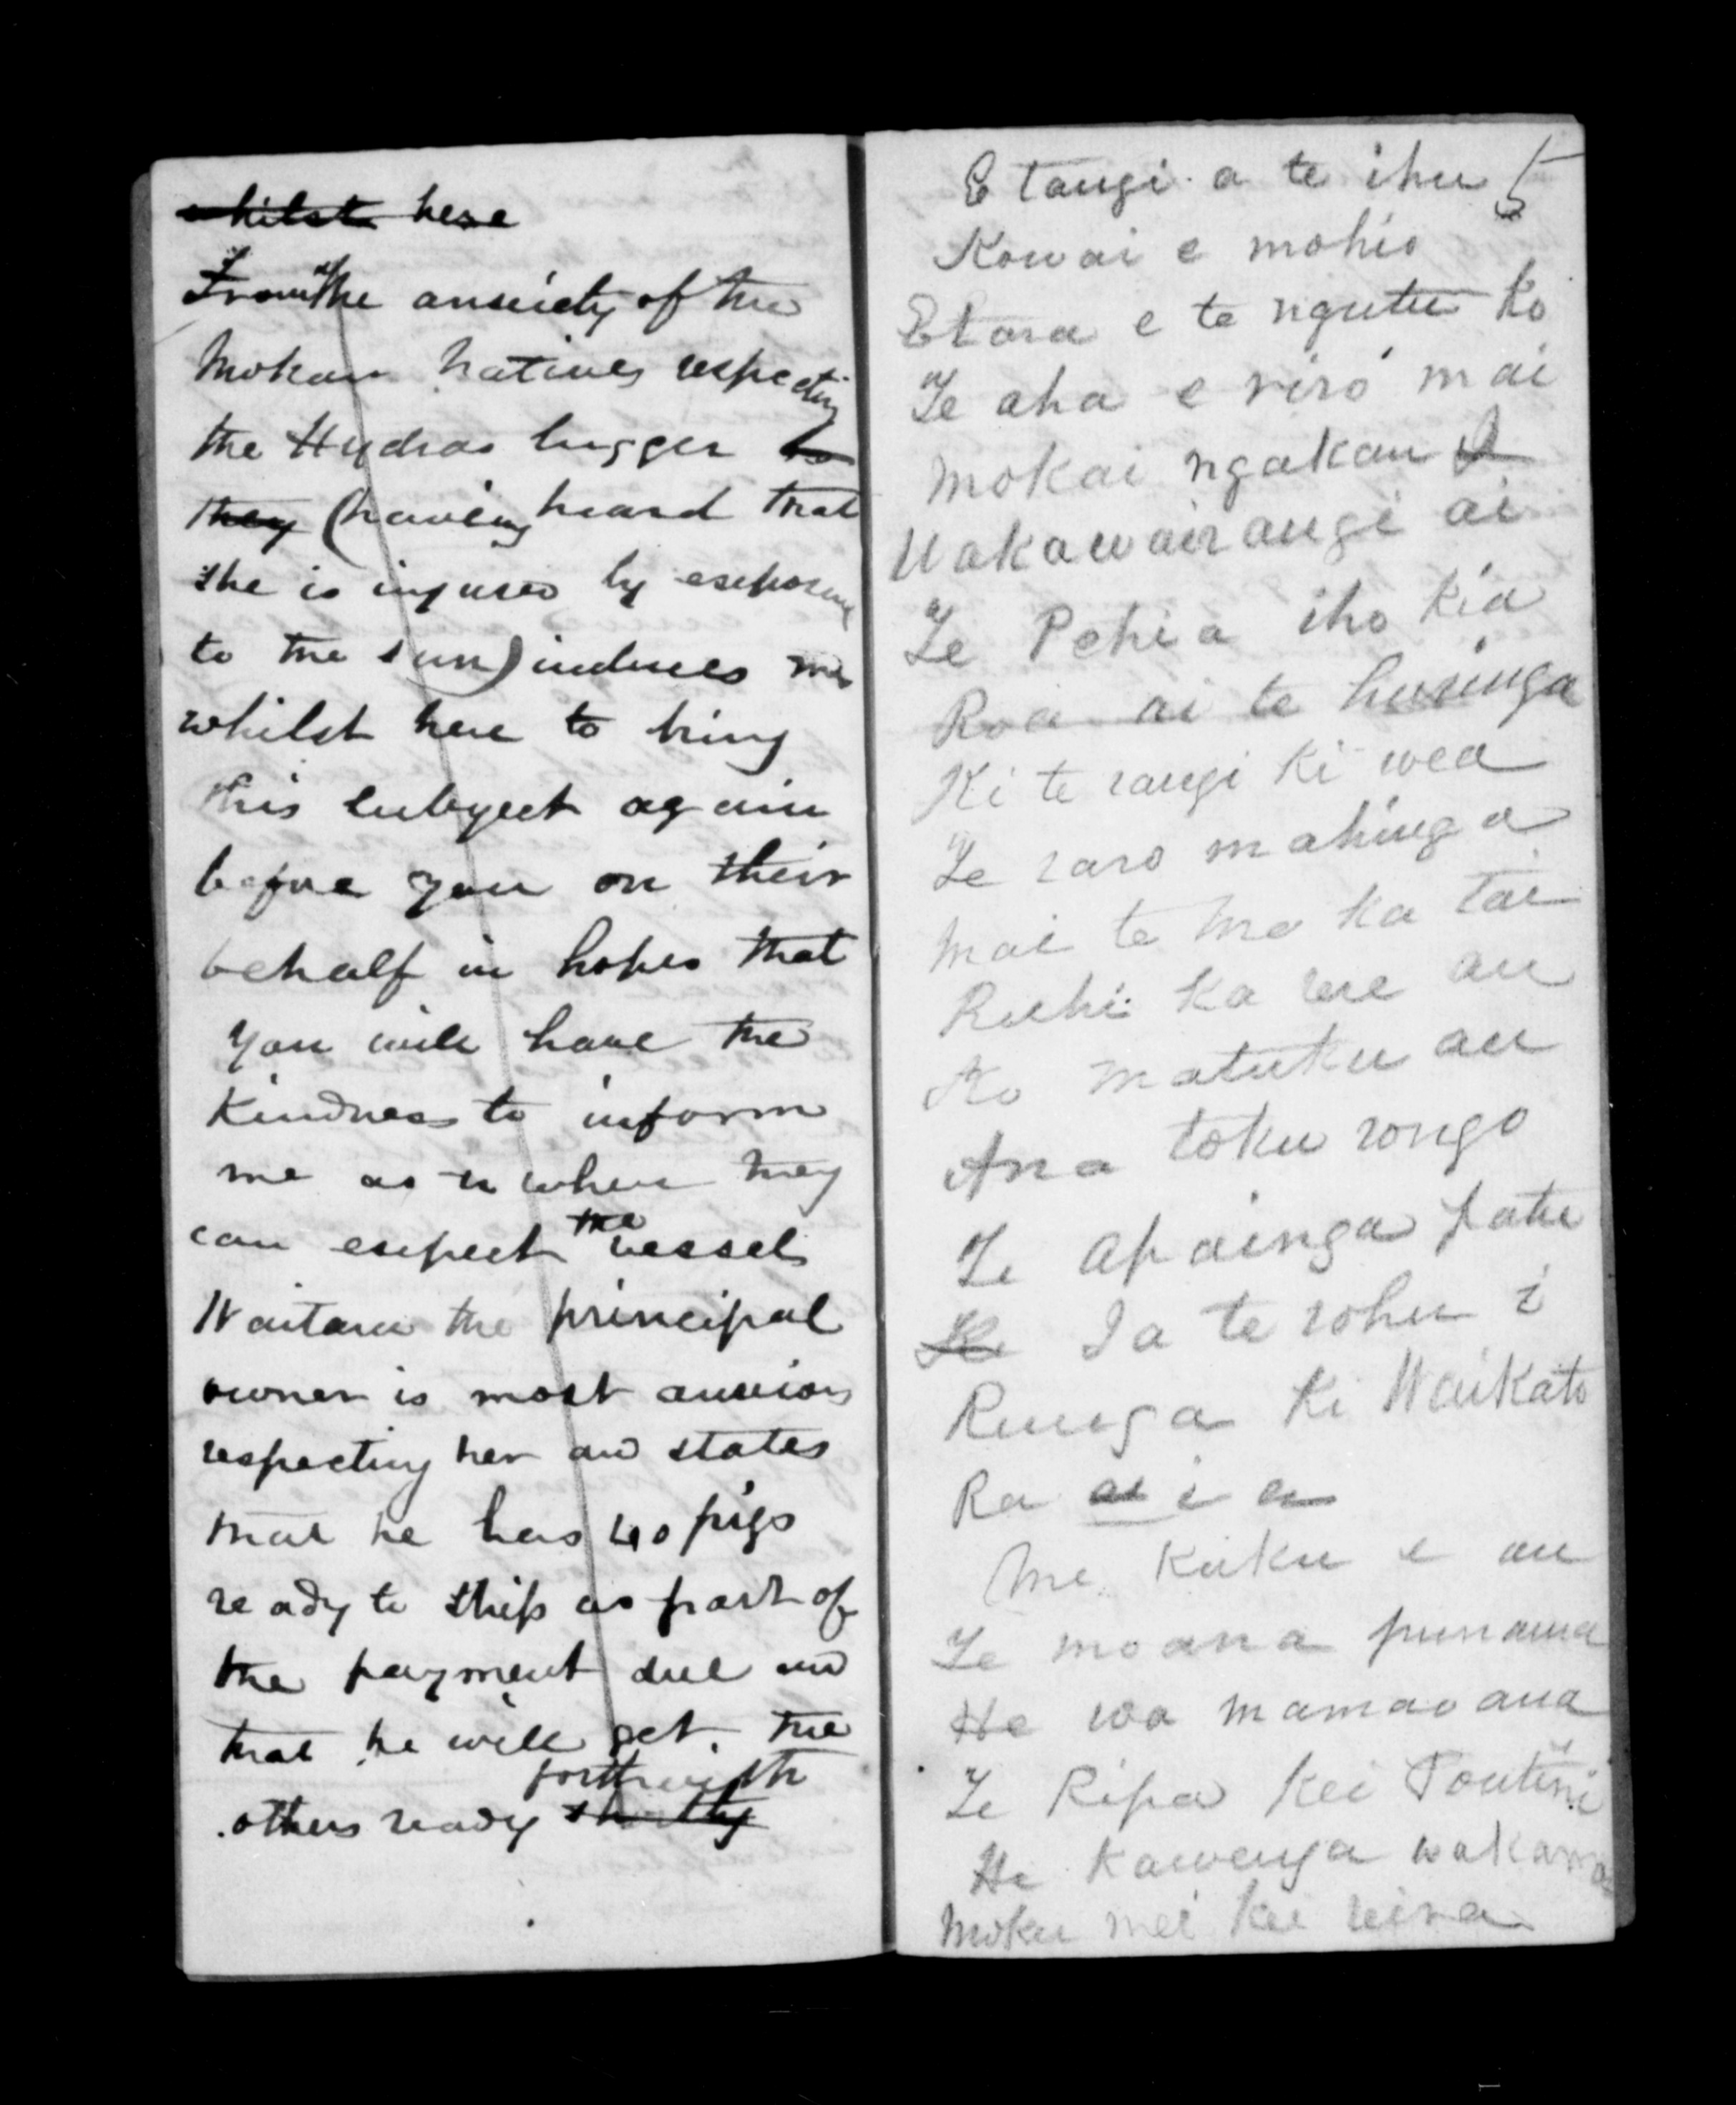 whilst here
From the anxiety of the
Mokau Natives respecting
the Hydras lugger to
they (having heard that
she is injured by exposure
to the sun) induces me
whilst here to bring
this subject again
before you on their
behalf in hopes that
you will have the
kindness to inform
me as to when they
can expect the vessel
Waitara the principal
owner is most anxious
respecting her and states
that he has 40 pigs
ready to ship as part of
the payment due and
that he will get the
forthwith
others ready shortly
E tangi a te ihu 5
Kowai e mohio
E tara e te ngutu ko
Te aha e riro mai
Mokai ngakau
Wakawairangi ai
Te Pehia iho kia
Roa ai te huringa
Ki te rangi ki wea
Te raro mahinga
Mai te mo ka tai
Ruhi ka rere au
Ko matuku au
Ana toku rongo
Te apainga patu
Ke Ia te rohu i
Runga ki Waikato
Ra ai i a
Me kuku e au
Te moana punaua
He wa mamao ana
Te Ripa kei Poutini
He kawenga wakama
Moku mei kei reira